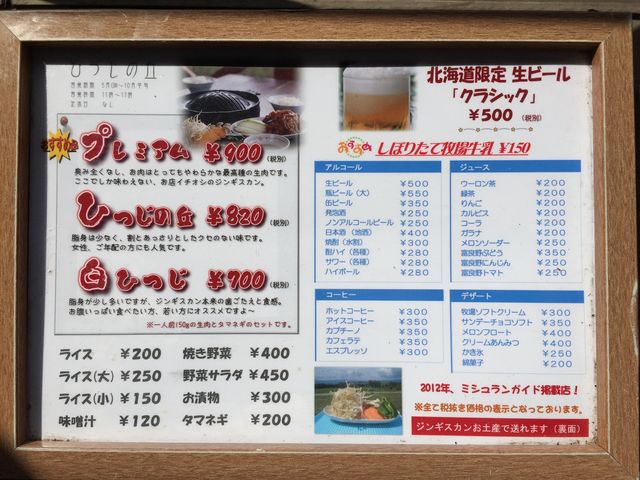 ひつじの丘
おすすめ
プレミアム ￥900(税別)
臭み全くなし、お肉はとってもやわらかな最高種の生肉です。
ここでしか味わえない、お店イチオシのジンギスカン。
ひつじの丘 ￥820(税別)
脂身は少なく、割とあっさりとしたクセのない味です。
女性、ご年配の方にも人気です。
白ひつじ ￥700(税別)
脂身が少し多いですが、ジンギスカン本来の歯ごたえと食感。
お腹いっぱい食べたい方、若い方にオススメですよ～
※一人前150gの生肉とタマネギのセットです。
ライス ￥200
ライス(大) ￥250
ライス(小) ￥150
味噌汁 ￥120
焼き野菜 ￥400
野菜サラダ ￥450
お漬物 ￥300
タマネギ ￥200
北海道限定 生ビール
「クラシック」
￥500(税別)
おすすめ しぼりたて牧場牛乳 ￥150
アルコール
生ビール ￥500
瓶ビール(大) ￥550
缶ビール ￥350
発泡酒 ￥250
ノンアルコールビール ￥250
日本酒(地酒) ￥400
焼酎(水割) ￥300
酎ハイ(各種) ￥280
サワー(各種) ￥280
ハイボール ￥280
ジュース
ウーロン茶 ￥200
緑茶 ￥200
りんご ￥200
カルピス ￥200
コーラ ￥200
ガラナ ￥200
メロンソーダー ￥250
富良野ぶどう ￥350
富良野にんじん ￥250
富良野トマト ￥250
コーヒー
ホットコーヒー ￥300
アイスコーヒー ￥350
カプチーノ ￥350
カフェラテ ￥350
エスプレッソ ￥300
デザート
牧場ソフトクリーム ￥300
サンデーチョコソフト ￥350
メロンフロート ￥400
クリームあんみつ ￥400
かき氷 ￥250
綿菓子 ￥200
2012年、ミシュランガイド掲載店！
※全て税抜き価格の表示となっております。
ジンギスカンお土産で送れます(裏面)